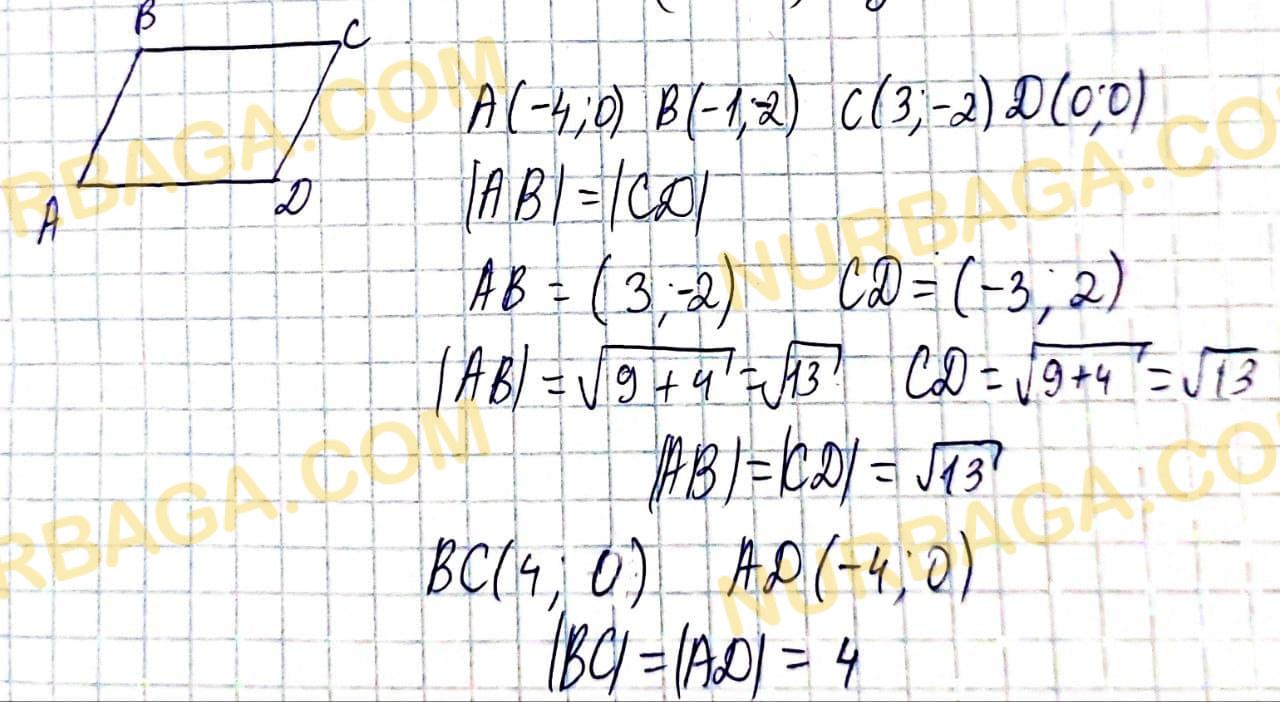 B
C
A
D
A(-4;0) B(-1;-2) C(3;-2) D(0;0)
|AB|=|CD|
AB = (3;-2) CD = (-3; 2)
|AB| = √9+4 = √13 CD = √9+4 = √13
|AB|=|CD| = √13
BC(4; 0) AD(-4;0)
|BC| = |AD| = 4
RBAGA.COM
NURBAGA.CO
RBAGA.COM
NURBAGA.CO